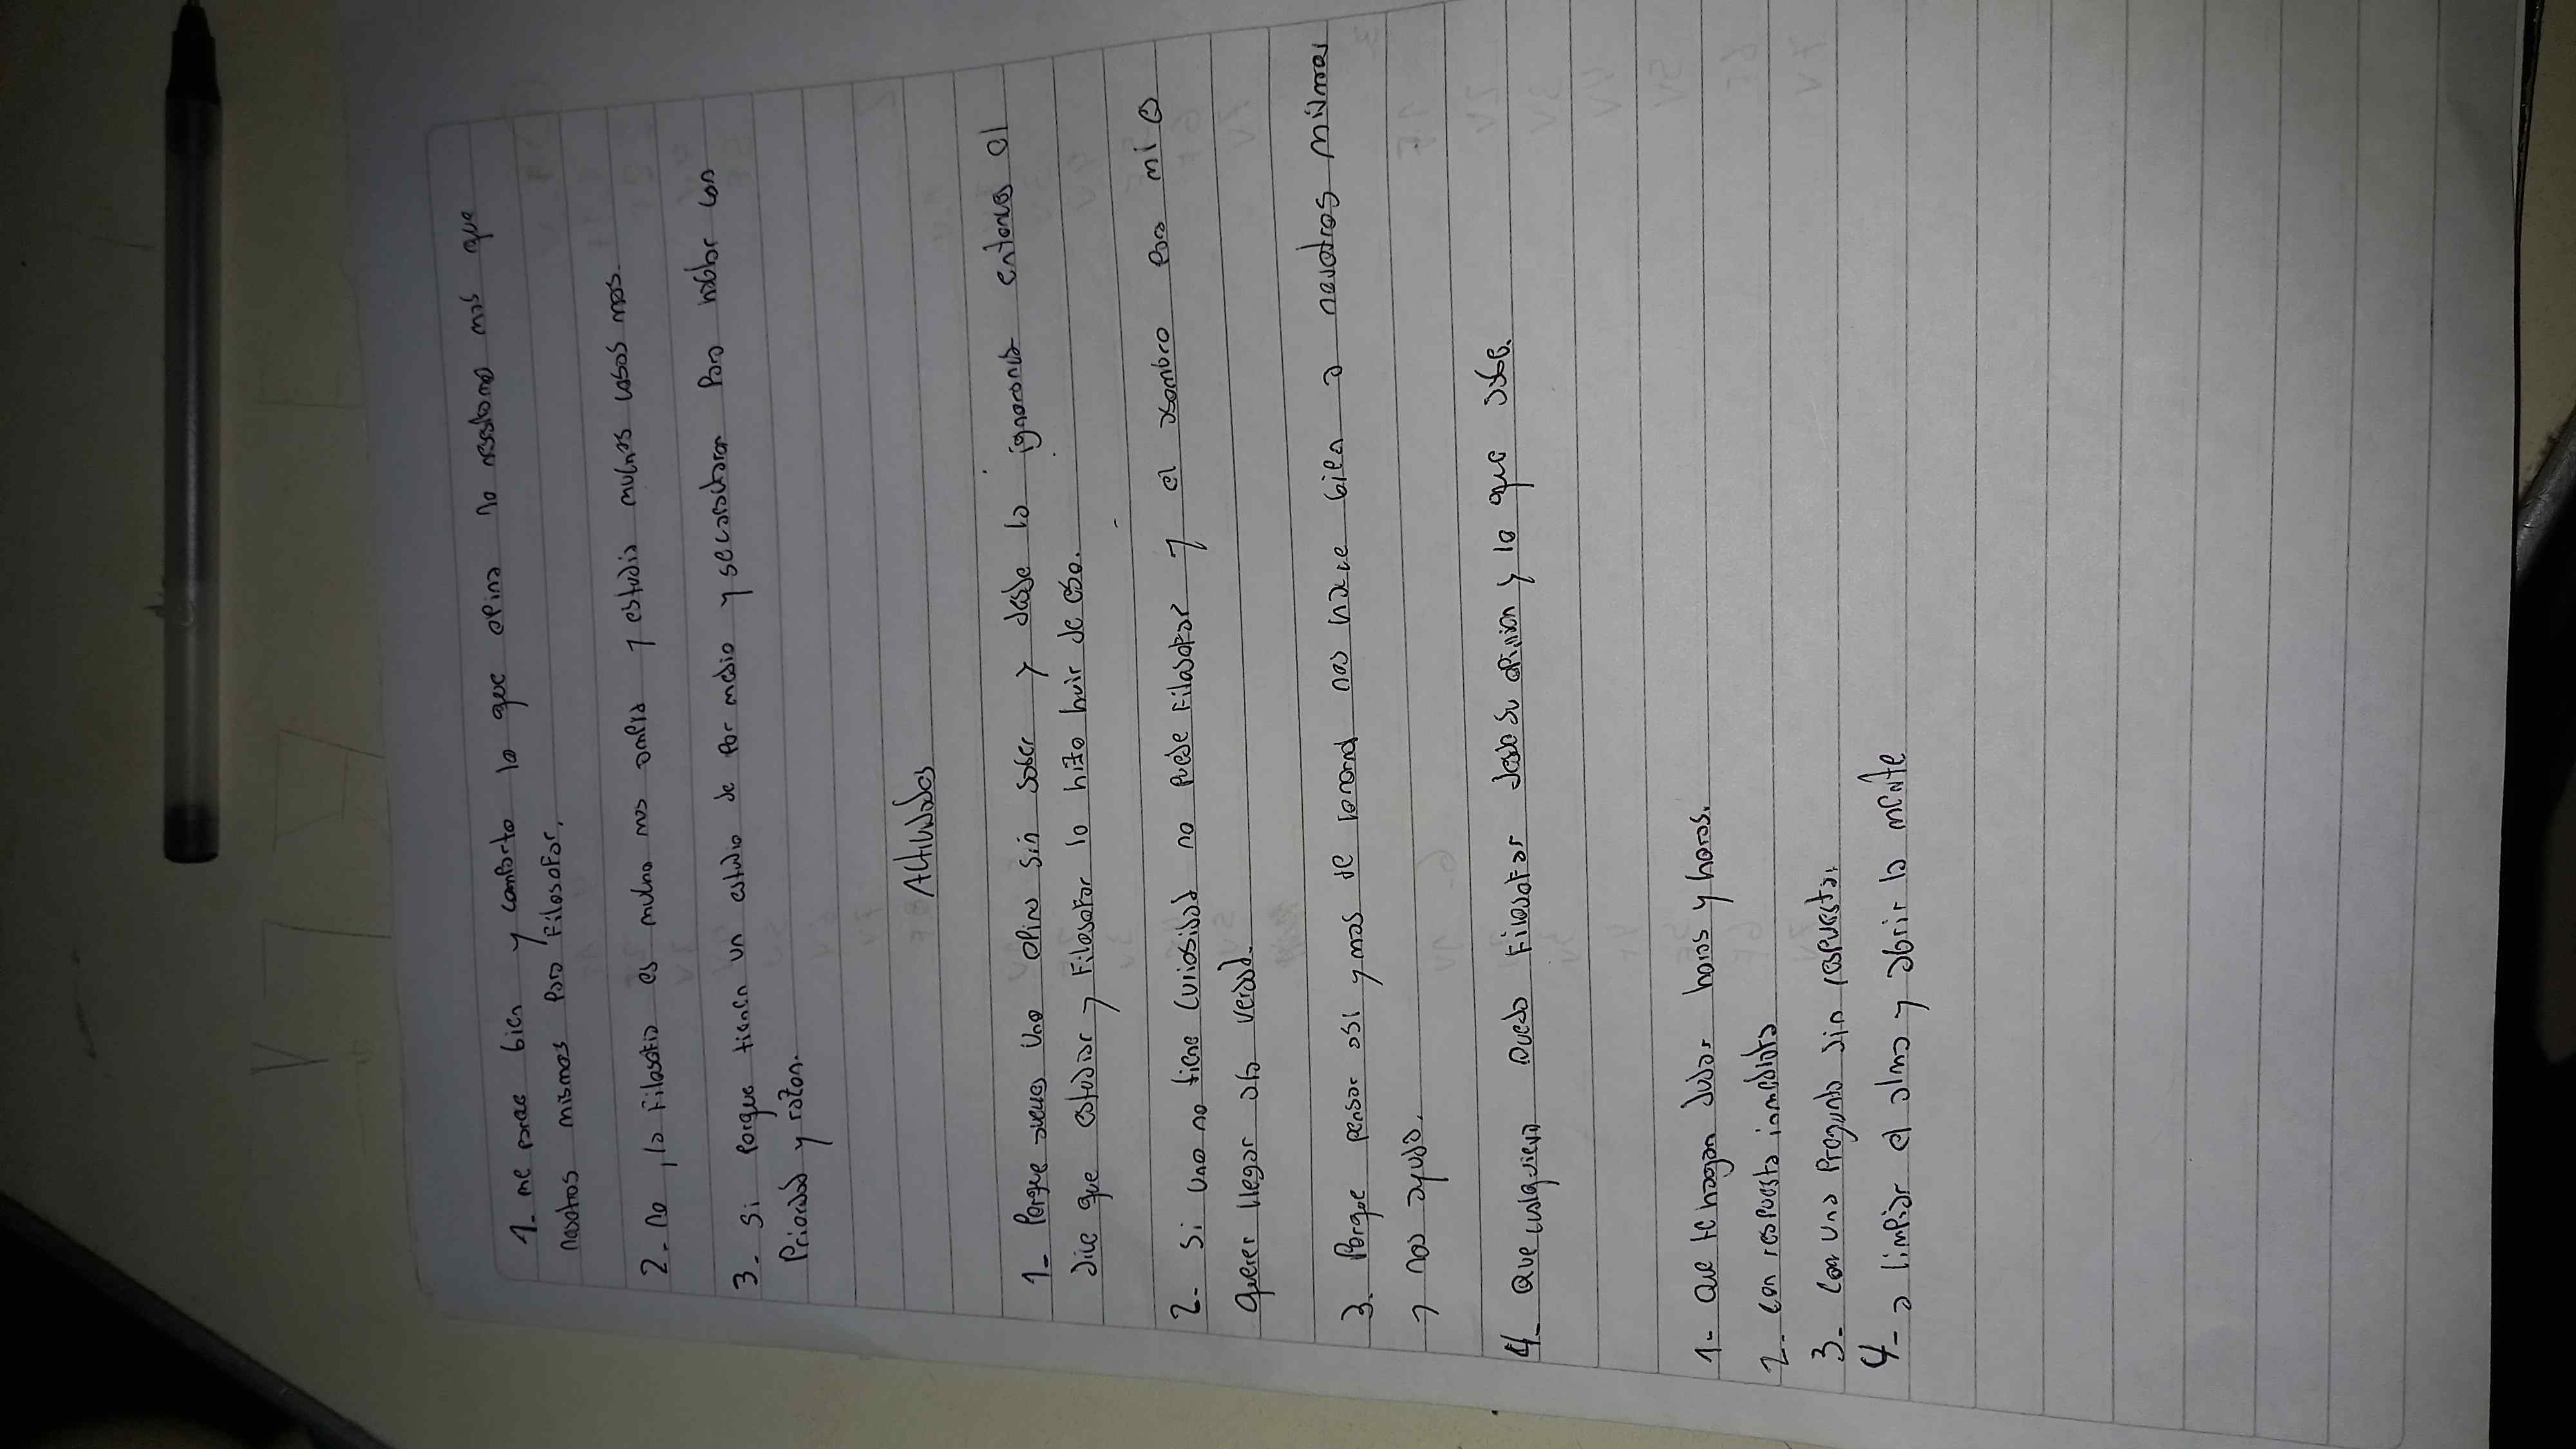 1- me parae bien y comparto lo que opina no nesesitamos mas que
nosotros mismos para filosofar.
2- no, la filosofia es mucho mas amplia y estudia muchas cosas mas.
3- si porque tienen un estudio de por medio y se capacitaron para hablar con
Prioridad y razon.
Actividades
1- Porque aveces uno opina sin saber y desde la ignorancia entonces al
dice que estudiar y filosofar lo hizo huir de eso.
2- si uno no tiene curiosidad no puede filosofar y el asombro para mi es
querer llegar ala verdad.
3- Porque pensar asi y mas de laramal nos hace bien a nosotros mismos
y nos ayuda.
4- Que cualquiera puedo filosofar desde su opinion y lo que sabe.
1- Que te hagan dudar horas y horas.
2- con respuesta inmediata
3- con una Pregunta sin respuesta.
4- a limpiar el alma y abrir la mente